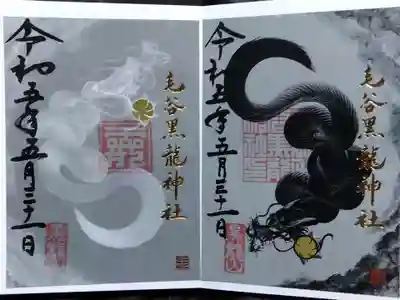 令和五年五月三十一日
毛谷黒龍神社
令和五年五月三十一日
毛谷黒龍神社